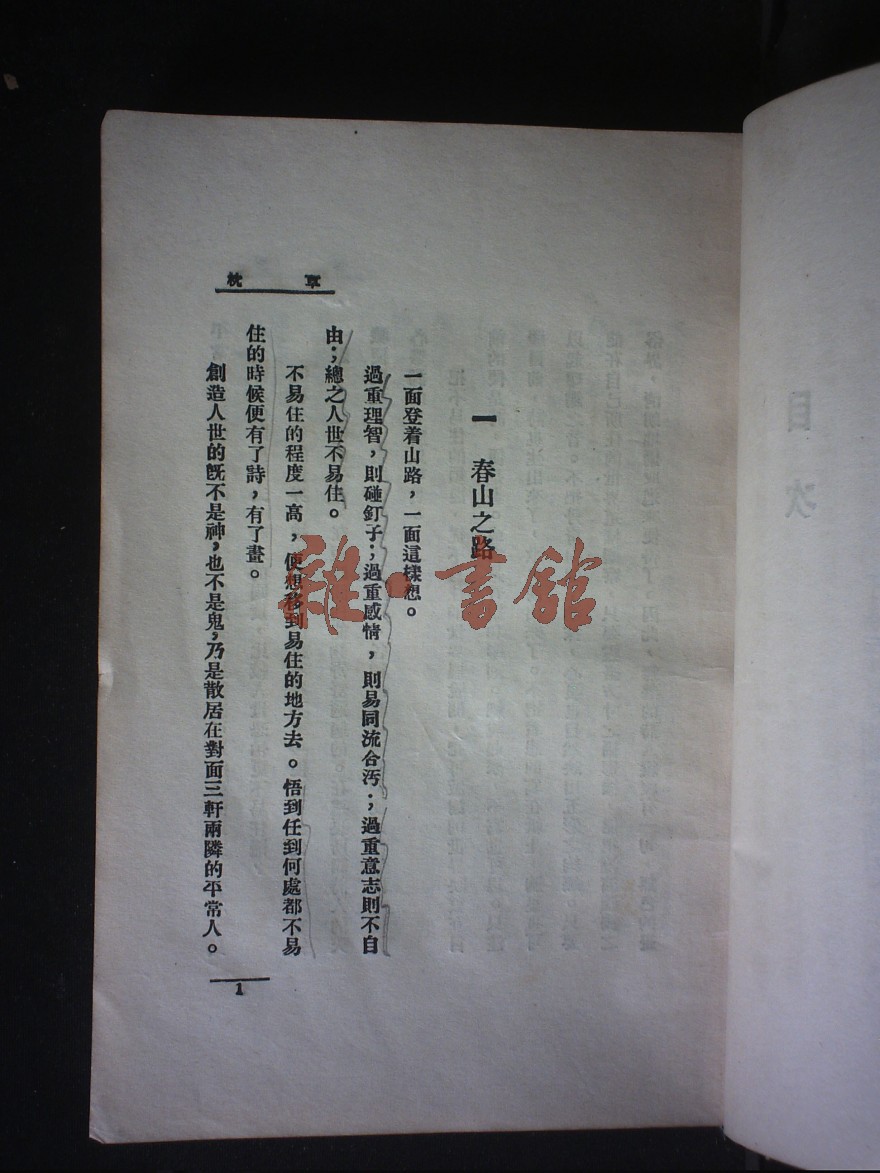 草枕
一　春山之路
一面登着山路，一面這樣想。
過重理智，則碰釘子；過重感情，則易同流合汚；過重意志則不自
由；總之人世不易住。
不易住的程度一高，便想移到易住的地方去。悟到任到何處都不易
住的時候便有了詩，有了畫。
創造人世的旣不是神，也不是鬼，乃是散居在對面三軒兩隣的平常人。
1
雜·書舘
目次